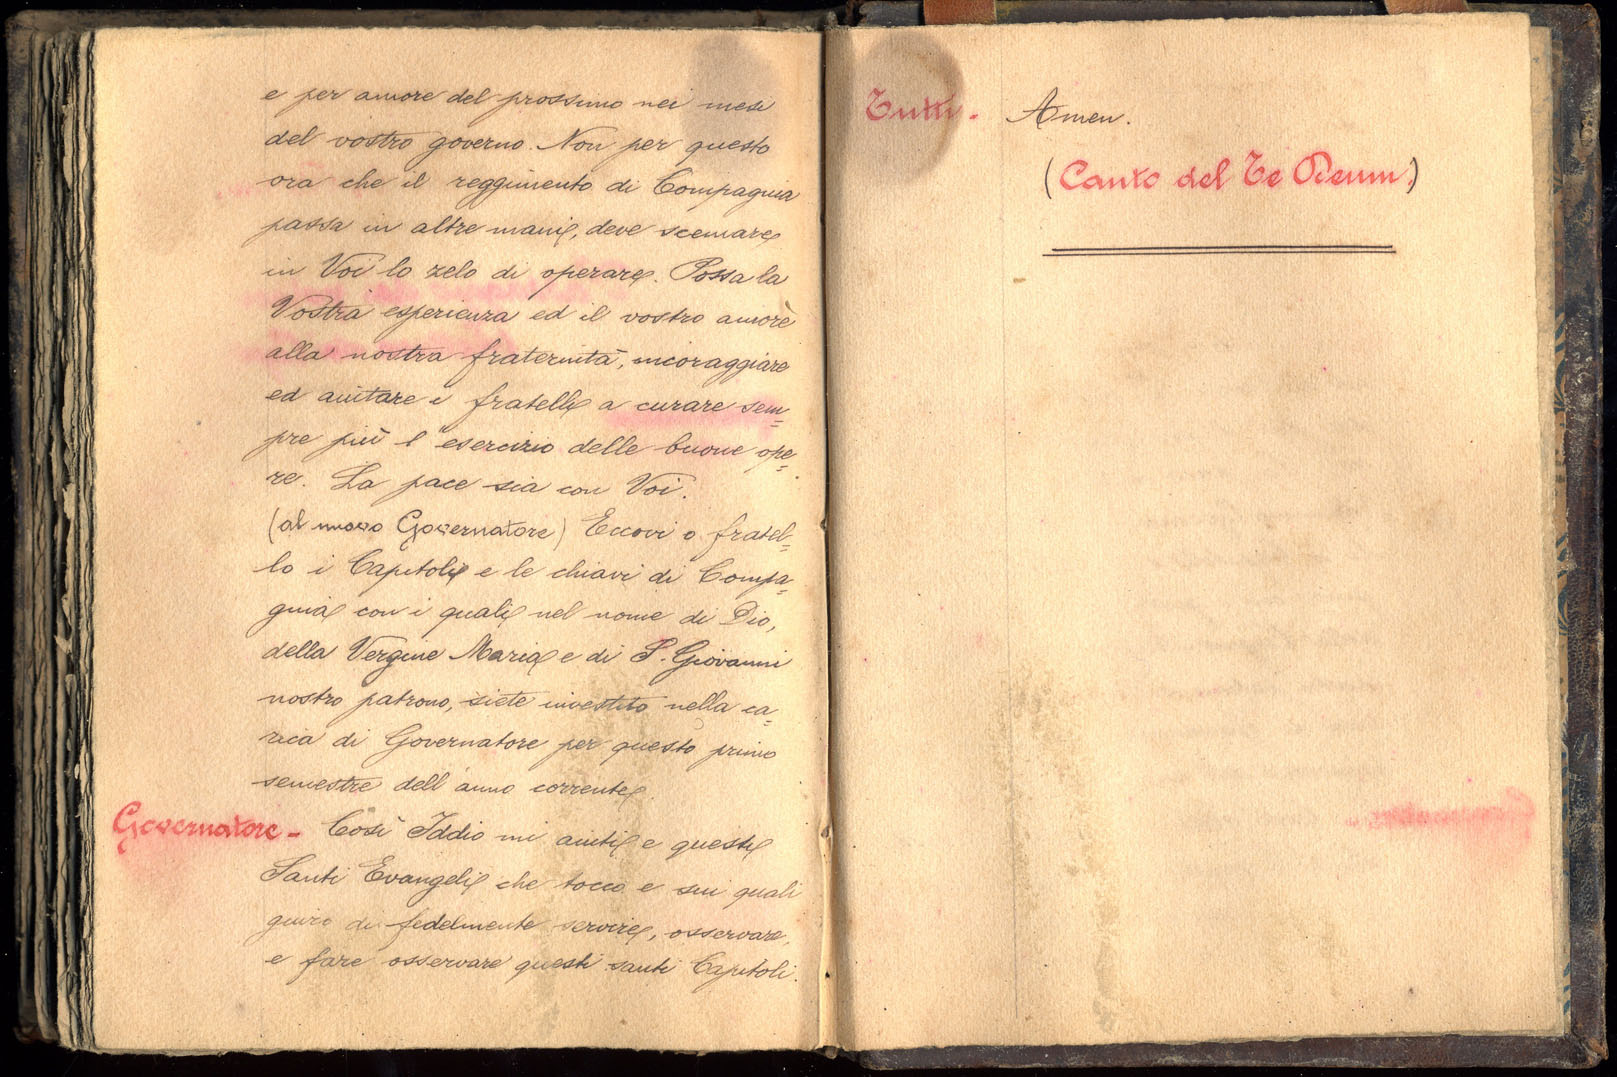 e per amore del prossimo nei mesi
del vostro governo. Non per questo
ora che il reggimento di Compagnia
passa in altre mani, deve scemare
in Voi lo zelo di operare. Possa la
Vostra esperienza ed il vostro amore
alla nostra fraternità, incoraggiare
ed aiutare i fratelli a curare sem=
pre più l'esercizio delle buone ope=
re. La pace sia con Voi.
(al nuovo Governatore) Eccovi o fratel=
lo i Capitoli e le chiavi di Compa=
gnia con i quali nel nome di Dio,
della Vergine Maria e di S. Giovanni
nostro patrono, siete investito nella ca=
rica di Governatore per questo primo
semestre dell'anno corrente.
Governatore - Così Iddio mi aiuti e questi
Santi Evangeli che tocco e sui quali
giuro di fedelmente servire, osservare,
e fare osservare questi santi Capitoli.
Tutti. Amen.
(Canto del Te Deum.)